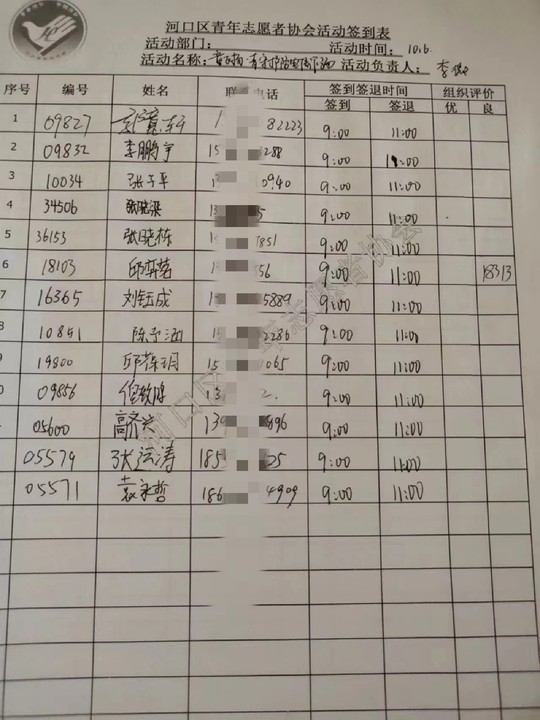 河口区青年志愿者协会活动签到表
活动部门: 活动时间: 10.6
活动名称: 活动负责人: 李
序号 编号 姓名 联 电话 签到签退时间 组织评价
签到 签退 优 良
1 09827 82223 9:00 11:00
2 09832 李鹏宇 15 288 9:00 11:00
3 10034 张子平 0940 9:00 11:00
4 34506 9:00 11:00
5 36153 张晓栋 7851 9:00 11:00
6 18103 邱奕茗 15 56 9:00 11:00 18313
7 16365 刘钰成 15 5889 9:00 11:00
8 10851 陈予涵 2286 9:00 11:00
9 19800 邱荐玥 15 1065 9:00 11:00
09856 13 9:00 11:00
05600 高齐兴 139 896 9:00 11:00
05579 张法涛 185 25 9:00 11:00
05571 袁家哲 186 4909 9:00 11:00
河口区青年志愿者协会